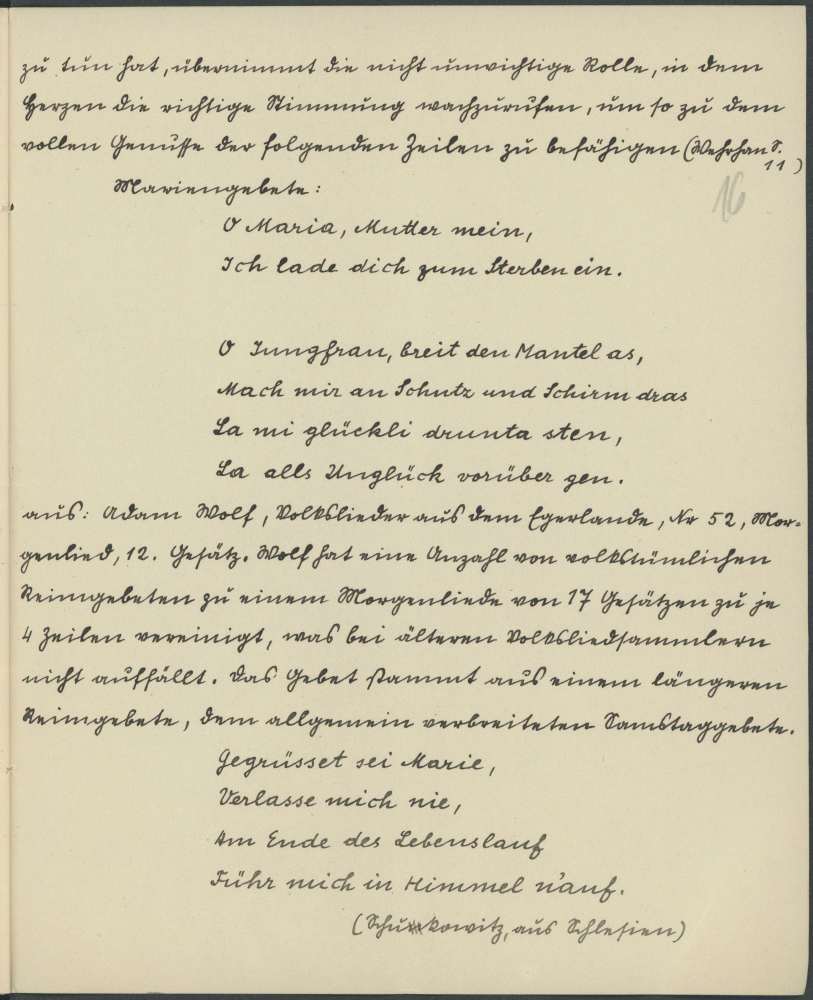 zu tun hat, übernimmt die nicht unwichtige Rolle, in dem
Herzen die richtige Stimmung wachzurufen, um so zu dem
vollen Genusse der folgenden Zeilen zu befähigen (Wehrhan S.
11)
16
Mariengebete:
O Maria, Mutter mein,
Ich lade dich zum Sterben ein.
O Jungfrau, breit den Mantel as,
Mach mir an Schutz und Schirm dras
La mi glückli drunta sten,
La alls Unglück vorüber gen.
aus: Adam Wolf, Volkslieder aus dem Egerlande, Nr 52, Mor-
genlied, 12. Gesätz. Wolf hat eine Anzahl von volkstümlichen
Reimgebeten zu einem Morgenliede von 17 Gesätzen zu je
4 Zeilen vereinigt, was bei älteren Volksliedsammlern
nicht auffällt. Das Gebet stammt aus einem längeren
Reimgebete, dem allgemein verbreiteten Samstaggebete.
Gegrüsset sei Marie,
Verlasse mich nie,
Am Ende des Lebenslauf
Führ mich in Himmel n'auf.
(Schukowitz, aus Schlesien)